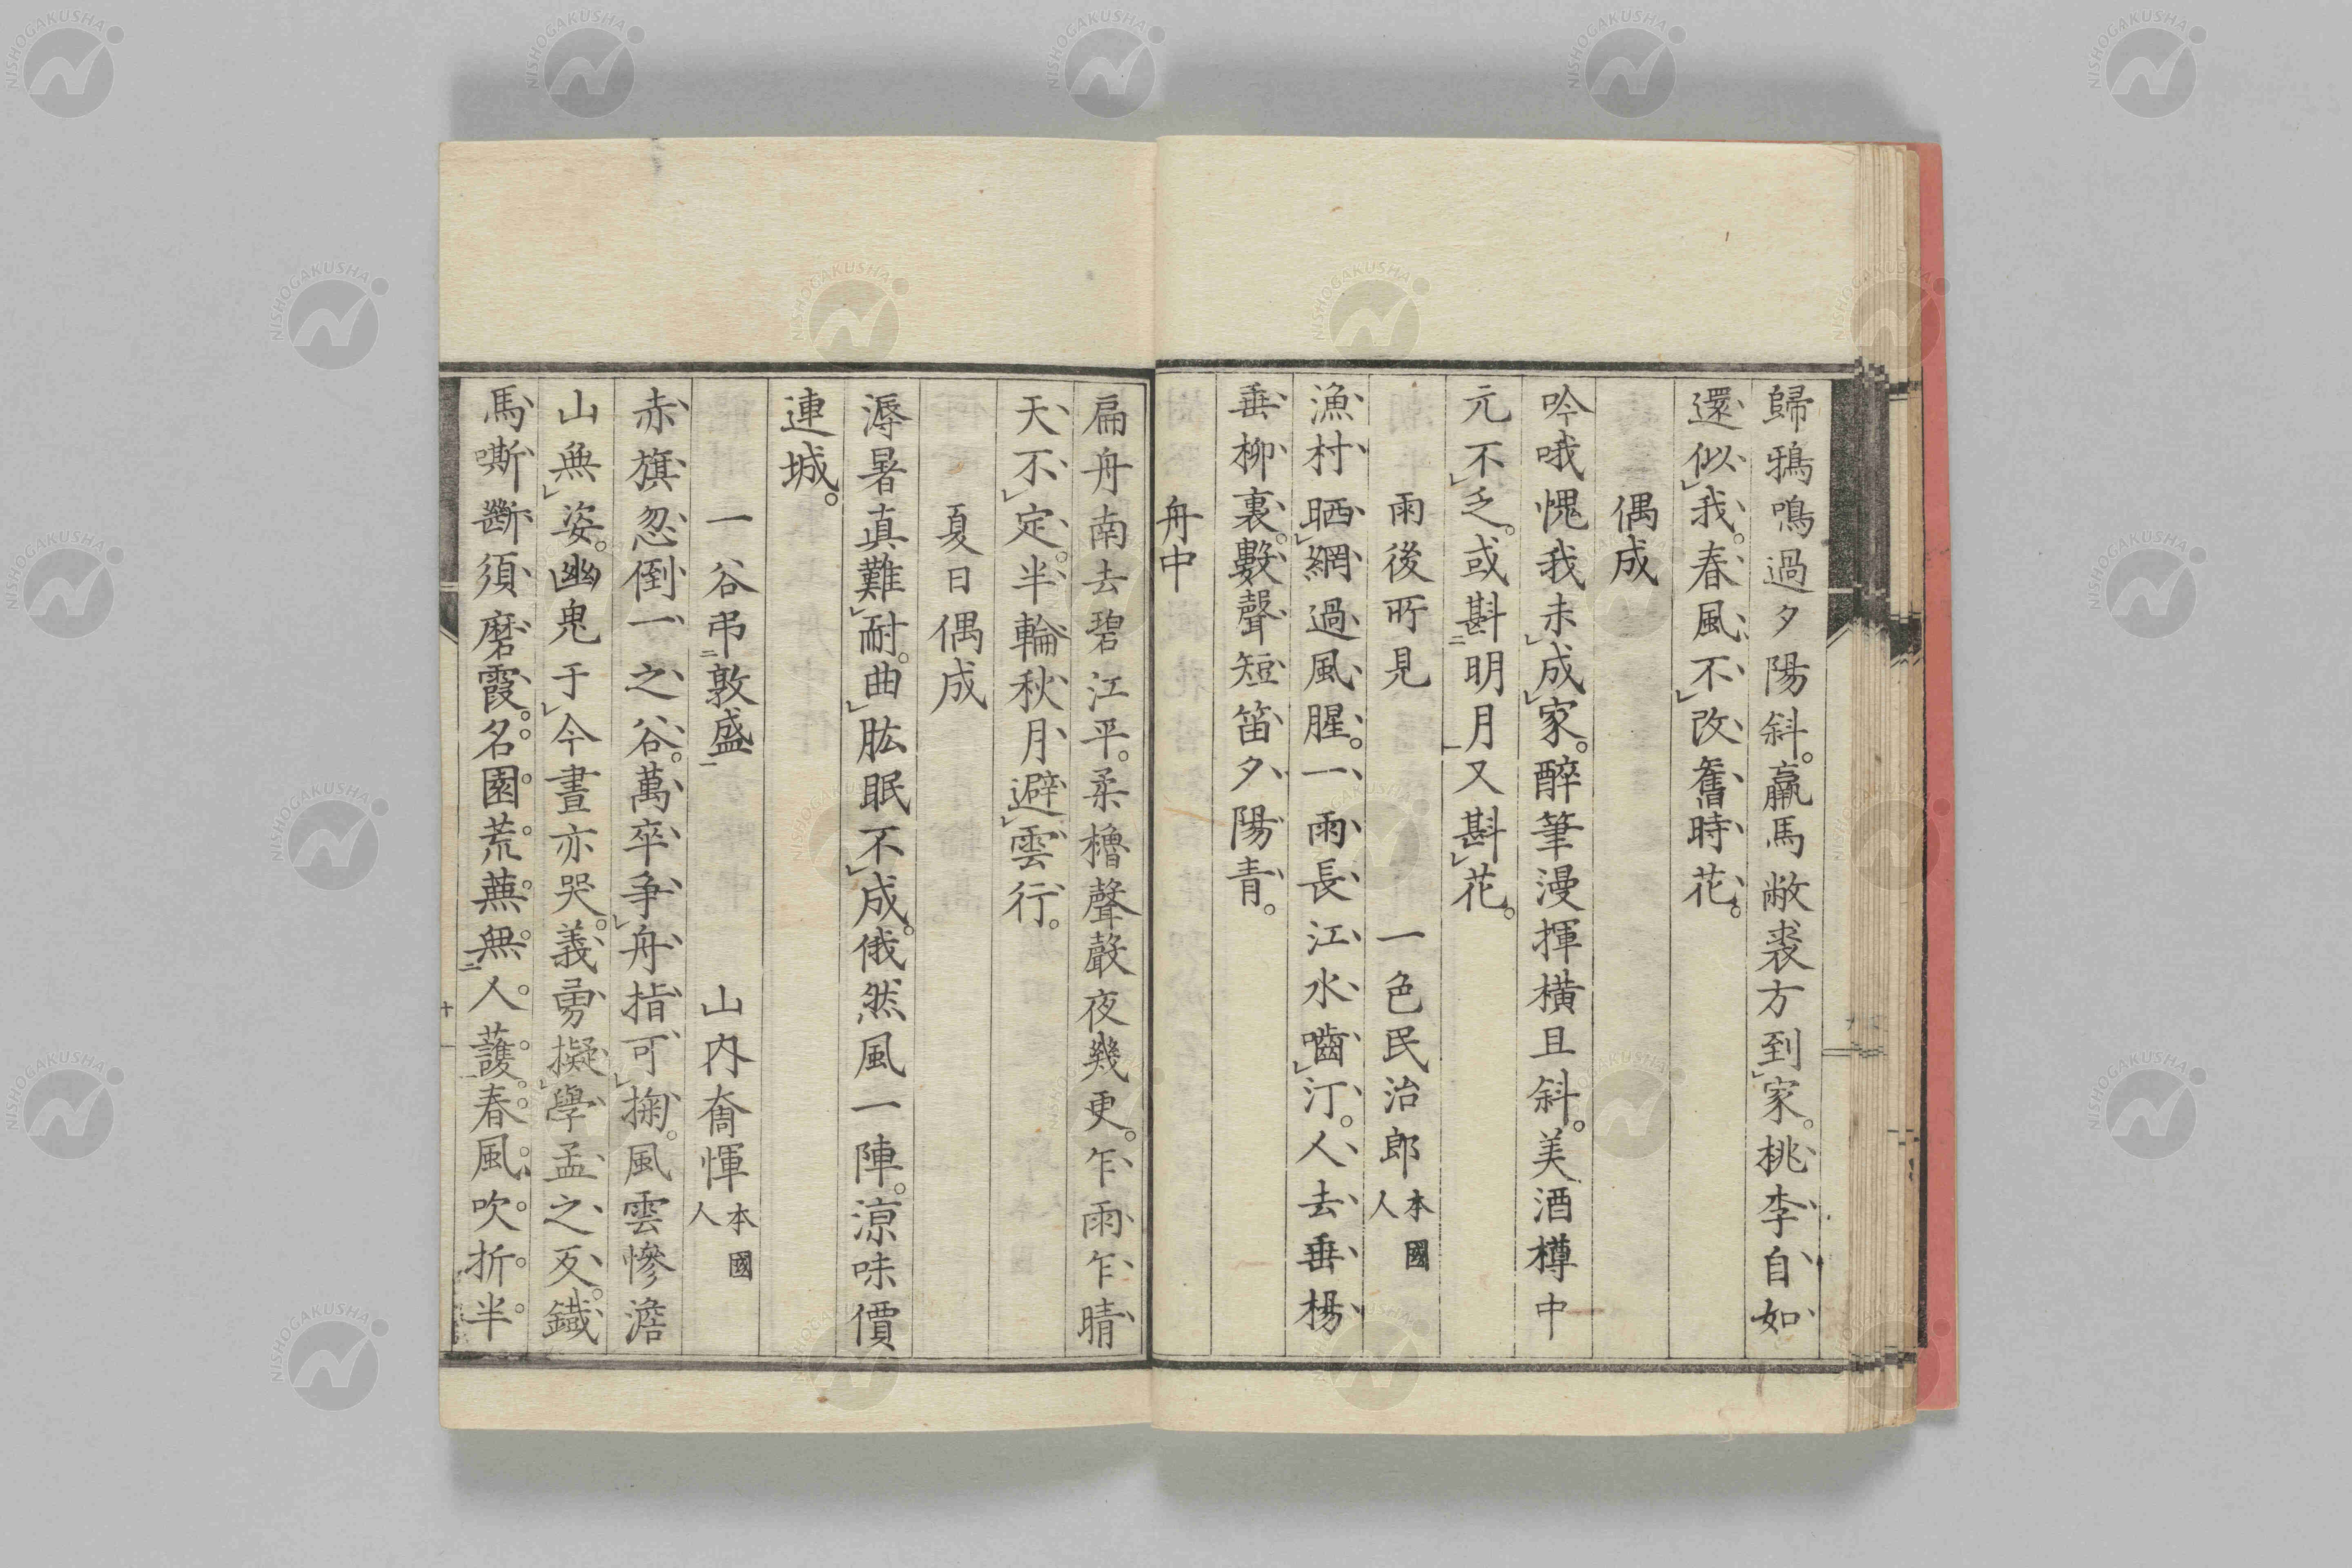 歸鴉鳴過夕陽斜。羸馬敝裘方到家。桃李自如
還似我。春風不改舊時花。
偶成
吟哦愧我未成家。醉筆漫揮橫且斜。美酒樽中
元不乏。或斟明月又斟花。
雨後所見　一色民治郎 本國人
漁村晒網過風腥。一雨長江水嚙汀。人去垂楊
垂柳裏。數聲短笛夕陽青。
舟中
扁舟南去碧江平。柔櫓聲聲夜幾更。乍雨乍晴
天不定。半輪秋月避雲行。
夏日偶成
溽暑真難耐。曲肱眠不成。俄然風一陣。涼味價
連城。
一谷弔敦盛　山內奮惲 本國人
赤旗忽倒一之谷。萬卒爭舟指可掬。風雲慘澹
山無姿。幽鬼于今晝亦哭。義勇擬學孟之反。鐵
馬嘶斷須磨霞。名園荒蕪無人護。春風吹折半
十一
NISHOGAKUSHA